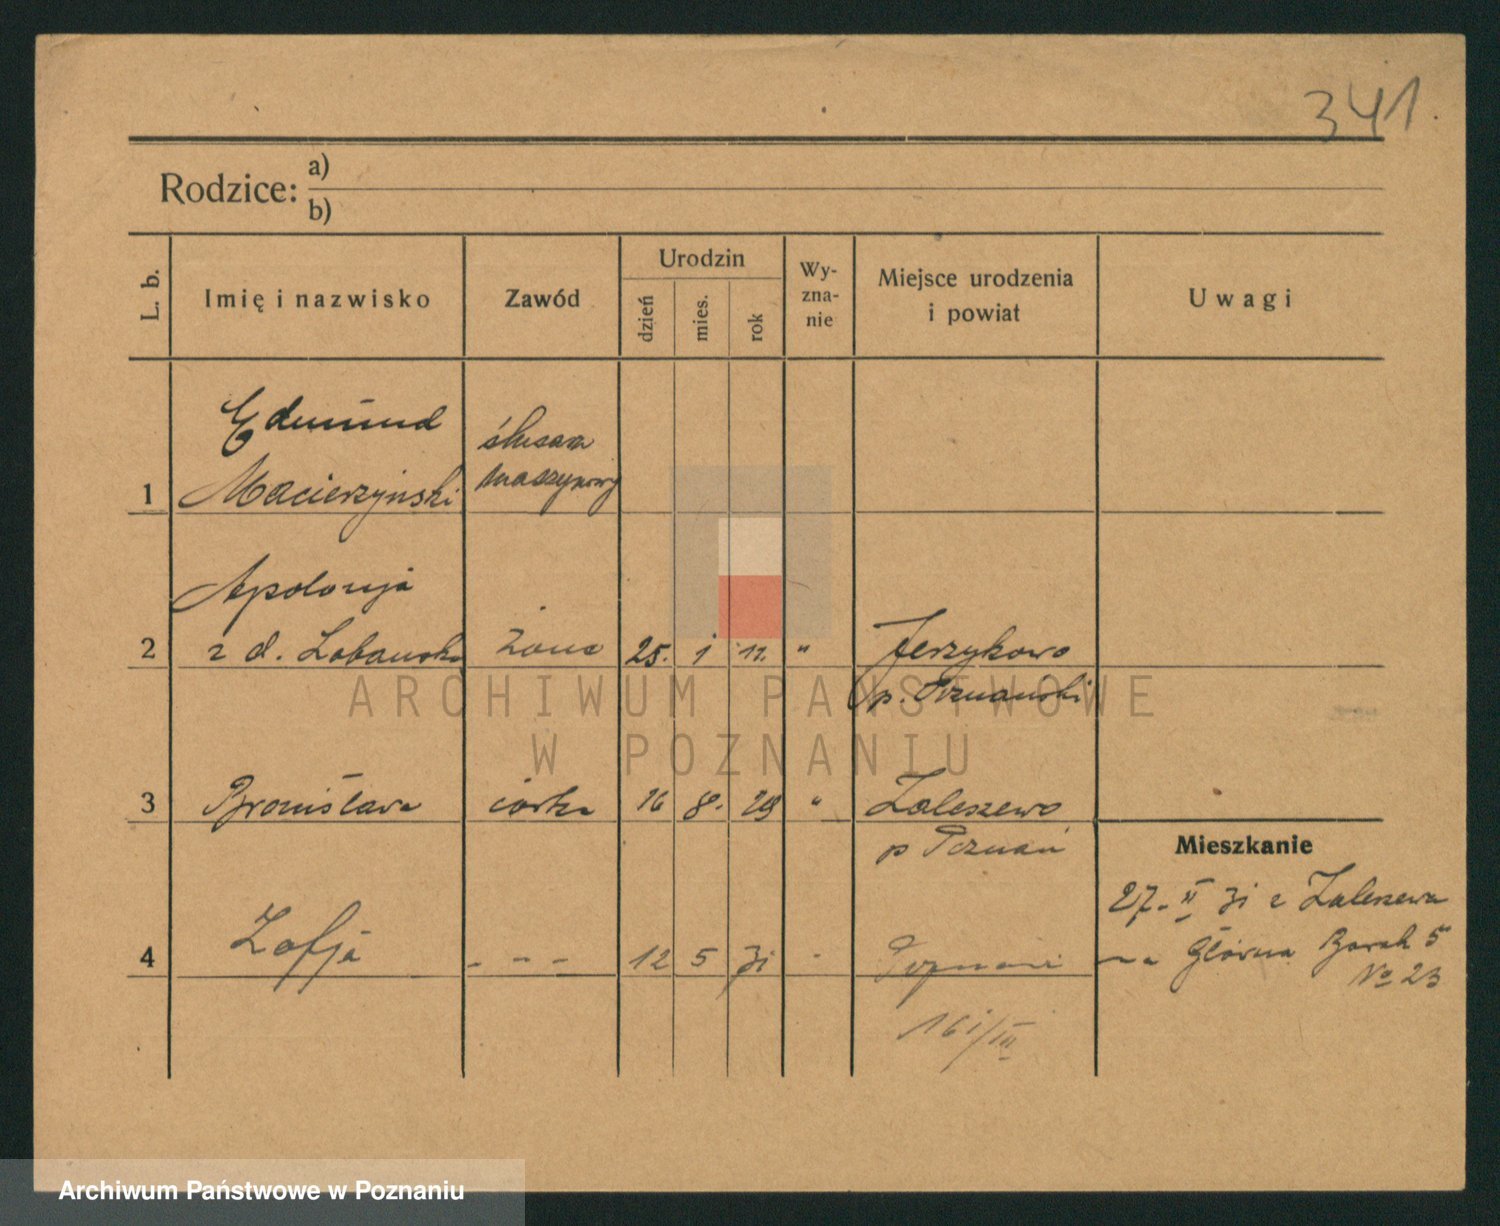 341.
Rodzice: a)
b)
L. b.
Imię i nazwisko
Zawód
Urodzin
dzień
mies.
rok
Wy-
zna-
nie
Miejsce urodzenia
i powiat
Uwagi
Edmund
Macierzyński
ślusarz
maszynowy
1
Apolonja
2 z d. Łobawska żona 25. 1 12. " Jerzykowo
p. Poznański
3 Bronisława córka 16 8. 29 " Zalesewo
p Poznań
Mieszkanie
27. II 31 z Zalesewa
na Główna Barak 5
No 23
4 Zofja - - - 12 5 31 - Poznań
161/III
ARCHIWUM PAŃSTWOWE
W POZNANIU
Archiwum Państwowe w Poznaniu